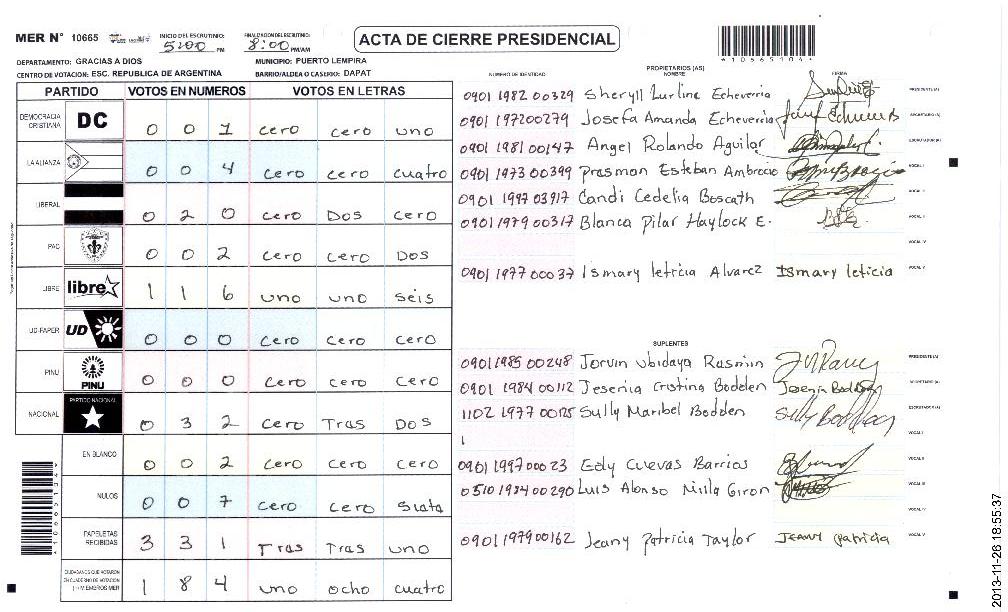 MER N° 10665
INICIO DEL ESCRUTINIO: 5:00 PM
FINALIZACION DEL ESCRUTINIO: 8:00 PM/AM
ACTA DE CIERRE PRESIDENCIAL
DEPARTAMENTO: GRACIAS A DIOS
MUNICIPIO: PUERTO LEMPIRA
CENTRO DE VOTACION: ESC. REPUBLICA DE ARGENTINA
BARRIO/ALDEA O CASERIO: DAPAT
PARTIDO VOTOS EN NUMEROS VOTOS EN LETRAS
DEMOCRACIA CRISTIANA DC 0 0 1 cero cero uno
LA ALIANZA 0 0 4 cero cero cuatro
LIBERAL 0 2 0 cero Dos cero
PAC 0 0 2 cero cero Dos
LIBRE libre 1 1 6 uno uno seis
UD-FAPER UD 0 0 0 cero cero cero
PINU PINU 0 0 0 cero cero cero
NACIONAL PARTIDO NACIONAL 0 3 2 cero Tras Dos
EN BLANCO 0 0 2 cero cero cero
NULOS 0 0 7 cero cero siata
PAPELETAS RECIBIDAS 3 3 1 Tras Tras uno
CIUDADANOS QUE VOTARON EN CUADERNO DE VOTACION (+) MIEMBROS MER 1 8 4 uno ocho cuatro
PROPIETARIOS (AS)
NUMERO DE IDENTIDAD NOMBRE FIRMA
0901 1982 00329 Sheryll Lurline Echeverria PRESIDENTE(A)
0901 197200279 Josefa Amanda Echeverria SECRETARIO (A)
0901 1981 00147 Angel Rolando Aguilar ESCRUTADOR (A)
0901 1973 00399 Prasman Esteban Ambrocio VOCAL I
0901 1997 03917 Candi Cedelia Boscath VOCAL II
0901 1979 00317 Blanca Pilar Haylock E. VOCAL III
VOCAL IV
0901 1977 00037 Ismary leticia Alvarez Ismary leticia VOCAL V
SUPLENTES
0901 1985 00248 Jorvin Ubidaya Rasmin PRESIDENTE(A)
0901 1984 00112 Jesenia Cristina Bodden SECRETARIO (A)
1102 1977 00125 Sully Maribel Bodden Sully Bodden ESCRUTADOR (A)
VOCAL I
0901 1997 00023 Edy Cuevas Barrios VOCAL II
0510 1984 00290 Luis Alonso Milla Giron VOCAL III
VOCAL IV
0901 1979 00162 Jeany Patricia Taylor Jeany Patricia VOCAL V
2013-11-26 18:55:37